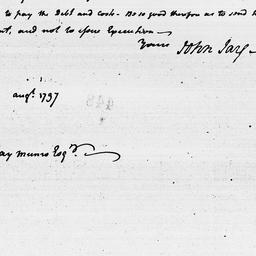 to pay the Debt and costs. Be so good therefore as to send h
nt, and not to issue Execution —
Yours
John Jay
augt. 1797
ay Munro Esqr.